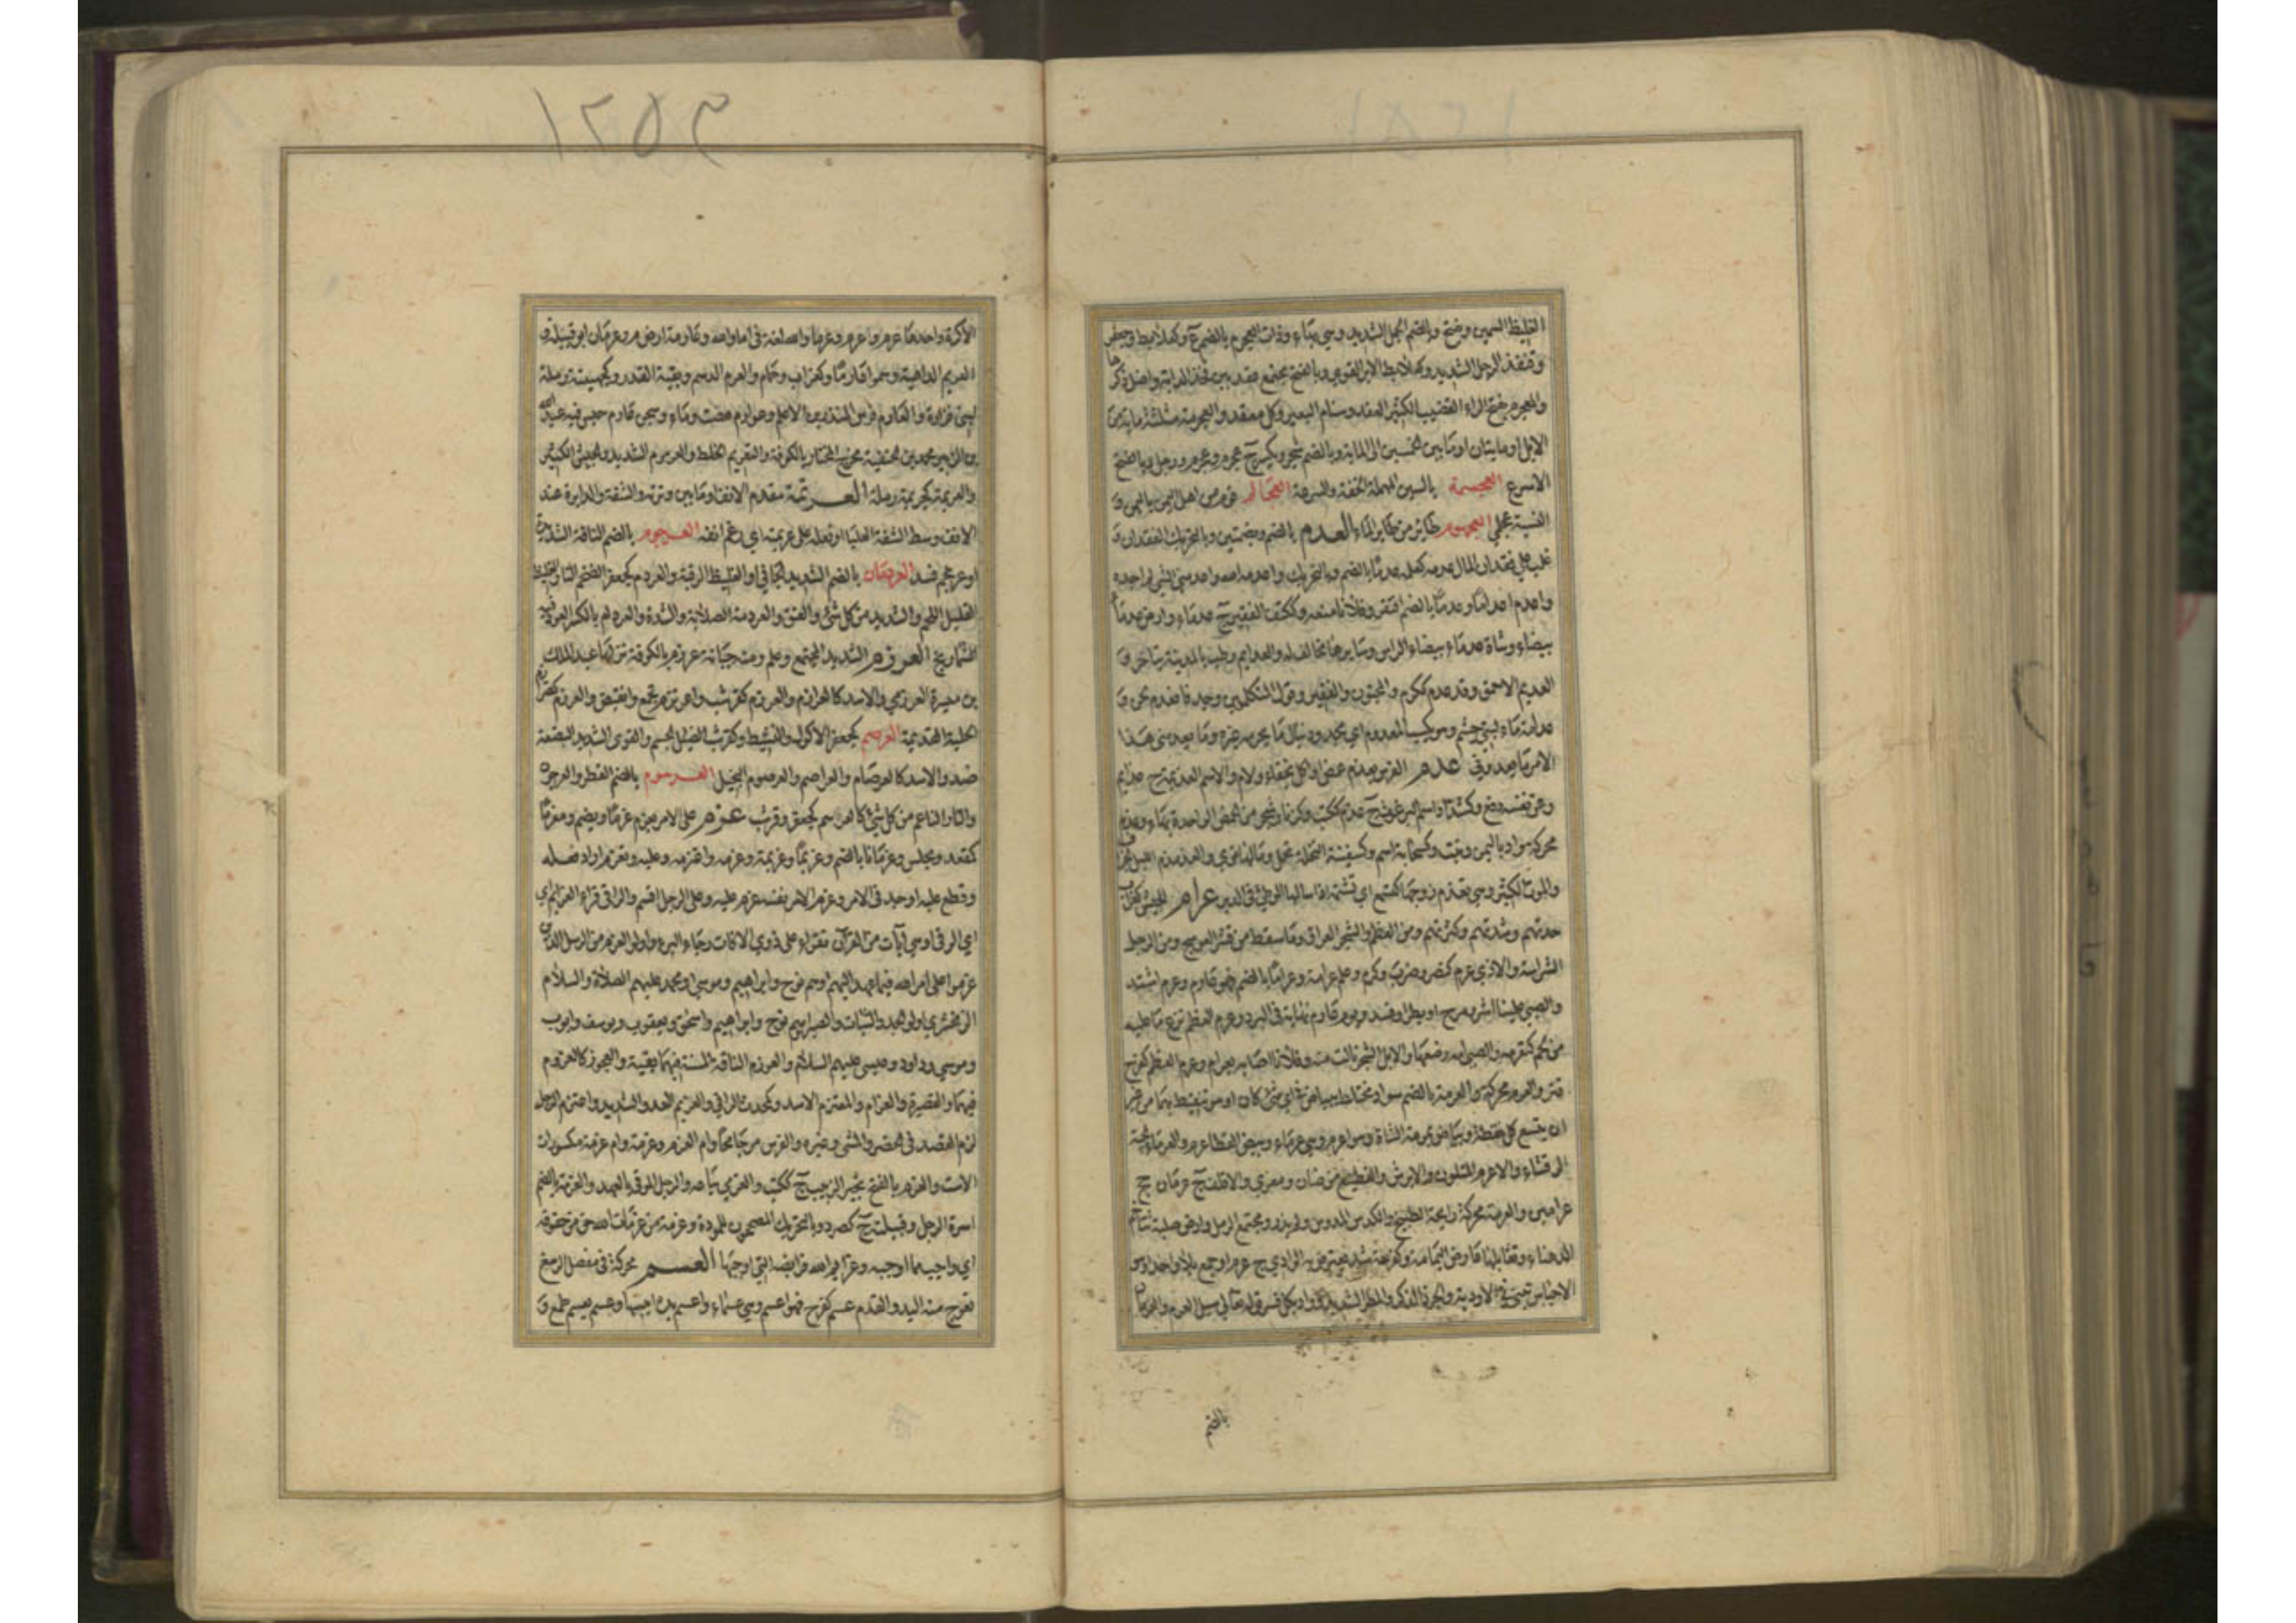 الغليظ السمين ويفتح وبالضم الجمل الشديد وهي بهاء وذات العجروم بالضم ع وكعلابط وجعفر
وقنفذ الرجل الشديد وكعلابط الاير القوي وبالفتح مجتمع عقد بين فخذ الدابة واصل ذكرها
والمعجرم بفتح الراء القضيب الكثير العقد وسنام البعير وكل معقد والعجرمة مثلثة مائة من
الابل او مايتان او ما بين الخمسين الى الماية وبالضم شجر ويكسر ج عجرم وعجرم ورجل وبالفتح
الاسرع العجسمة بالسين المهملة الخفة والسرعة العجالم
النسبة عجلي العجهوم طائر من طاير الماء العدم بالضم وبضمتين وبالتحريك الفقدان و
غلب على فقدان المال عدمه كعلمه عدما بالضم وبالتحريك واعدمه الله واعدمني الشئ لم اجده
واعدم اعداما وعدما بالضم افتقر وفلانا منعه وككتف الفقير ج عدماء وارض عدماء
بيضاء وشاة عدماء بيضاء الراس وسايرها مخالف له والعدايم رطب بالمدينة يتاخر و
العديم الاحمق وقد عدم ككرم والمجنون والفقير وقول المتكلمين وجد فانعدم لحن و
عدامة ماء لبني جشم وهو يكسب المعدوم اي مجدود ينال ما يحرمه غيره وما يعدمني هذا
الامر ما يعدوني عذم الفرس يعذم عض او اكل بجفاء ولام والاسم العذيمة ج عذايم
وعن نفسه دفع وكشداد اسم البرغوث ج عذم ككتب
محركة واد باليمن ونبت وكسحابة اسم وكسفينة
والموت الكثير وهي تعذم زوجها عرام الجيش كغراب
حدتهم وشدتهم وكثرتهم ومن العظم والشجر العراق وما سقط من قشر العوسج ومن الرجل
الشراسة والاذي عرم كنصر وضرب وكرم وعلم عرامة وعراما بالضم فهو عارم وعرم اشتد
والصبي علينا اشر ومرح او بطر او فسد ويوم عارم نهاية في البرد وعرم العظم نزع ما عليه
من لحم كتعرمه والصبي امه رضعها والابل الشجر نالت منه وفلانا اصابه بعرام وعرم العظم كفرح
قتر والعرم محركة والعرمة بالضم سواد مختلط ببياض في اي شئ كان او هو تنقيط بهما من غير
ان يتسع كل نقطة وبياض بمرمة الشاة وهو اعرم وهي عرماء وبيض القطا عرم والعرماء الحية
الرقشاء والاعرم المتلون والابرش والقطيع من ضان ومعزي والاقلف ج عرمان جج
عرامين والعرمة محركة رايحة الطبيخ والكدس المدوس ولم يذر ومجتمع الرمل وارض صلبة تتاخم
الدهناء ويقابلها عارض اليمامة وكفرحة سد يعترض به الوادي ج عرم او جمع بلا واحد او هو
الاحباس تبني في الاودية والجرذ الذكر والمطر الشديد وواد وبكل فسر قوله تعالي سيل العرم والعرمان
بالضم
١٢٥٣
الاكرة واحدها عرم واعرم وعرم والله لغة في اما والله وعارمة ارض م وعرمان ابو قبيلة و
العريم الداهية وسموا عارما وكغراب وحمام والعرم الدسم وبقية القدر وكجهينة رملة
لبني فزارة والعارم فرس المنذر بن الاعلم وعوارم هضبة وماء وسجن عارم حبس فيه عبد الله
بن الزبير محمد بن الحنفية مخرج المختار بالكوفة والتعريم الخلط والعرمرم الشديد والجيش الكثير
والعريمة كجريمة رملة العرتمة مقدم الانف او ما بين وترته والشفة والدايرة عند
الانف وسط الشفة العليا او فعله على عرتمته اي رغم انفه العرجوم بالضم الناقة الشديدة
العردمان بالضم الشديد الجافي او الغليظ الرقبة والعردم كجعفر الضخم التار الغليظ
القليل اللحم والشديد من كل شئ والعنق والعردمة الصلابة والشدة والعردام بالكسر العود فيه
الشماريخ العرزم الشديد المجتمع وعلم ومنه جبانة عرزم بالكوفة نزلها عبد الملك
بن ميسرة العرزمي والاسد كالعرازم والعرزم كقرشب واعرنزم تجمع وانقبض والعرزم كعتريف
الحية القديمة العرصم كجعفر الاكول والنشيط وكقرشب الضئيل الجسم والقوي الشديد البضعة
ضد والاسد كالعرصام والعراصم والعرصوم البخيل العرهوم بالضم
والتار الناعم من كل شئ كالعراهم كجعفر وقرشب عزم على الامر يعزم عزما ويضم ومعزما
كمقعد ومجلس وعزمانا بالضم وعزيما وعزيمة وعزمه واعتزمه وعليه وتعزم اراد فعله
وقطع عليه او جد في الامر وعزم الامر نفسه عزم عليه وعلى الرجل اقسم والراقي قراء العزايم اي
اي الرقي او هي آيات من القرآن تقراء على ذوي الافات رجاء البرء واولو العزم من الرسل الذين
عزموا على امر الله فيما عهد اليهم او هم نوح وابراهيم وموسي ومحمد عليهم الصلاة والسلام
الزمخشري اولو الجد والثبات والصبر او هم نوح وابراهيم واسحق ويعقوب ويوسف وايوب
وموسي وداود وعيسي عليهم السلام والعوزم الناقة المسنة فيها بقية والعجوز كالعزوم
فيهما والقصيرة والعزام والمعتزم الاسد وكمحدث الراقي والعزيم العدو الشديد واعتزم الرجل
لزم القصد في الحضر والمشي وغيره والفرس مر جامحا وام العزم وعزمة وام عزمة مكسورات
الاست والعزم بالفتح ثجير الزبيب ج ككتب والعزمي بياعه والرجل الموفي بالعهد والعزمة بالضم
اسرة الرجل وقبيلته ج كصرد وبالتحريك المصححون للمودة وعزمة من عزمات الله حق من حقوقه
اي واجب مما اوجبه وعزايم الله فرايضه التي اوجبها العسم محركة في مفصل الرسغ
تعوج منه اليد والقدم عسم كفرح فهو اعسم وهي عسماء واعسم يده ايبسها وعسم يعسم طمع و